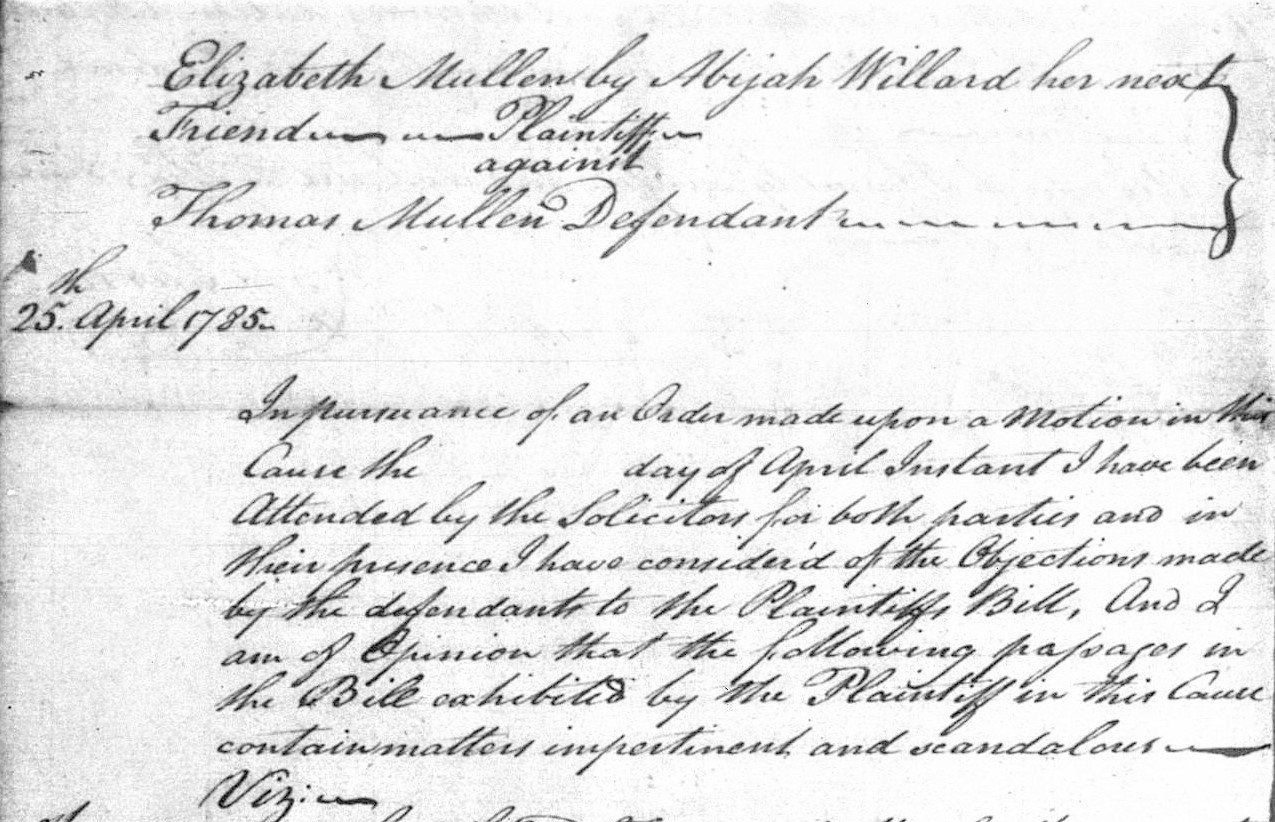 Elizabeth Mullen by Abijah Willard her next
Friend Plaintiff
against
Thomas Mullen Defendant
25th. April 1785
In pursuance of an Order made upon a Motion in this
Cause the day of April Instant I have been
Attended by the Solicitors for both parties and in
their presence I have consider'd of the Objections made
by the defendants to the Plaintiffs Bill, And I
am of Opinion that the following passages in
the Bill exhibited by the Plaintiff in this Cause
contain matters impertinent and scandalous
Viz: